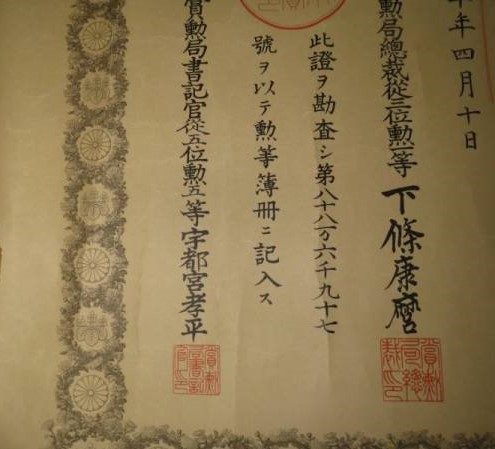 年四月十日
勲局總裁從三位勲一等下條康麿
此證ヲ勘査シ第八十八万六千九十七
號ヲ以テ勲等簿冊ニ記入ス
賞勲局書記官從五位勲五等宇都宮孝平
賞勲局總裁印